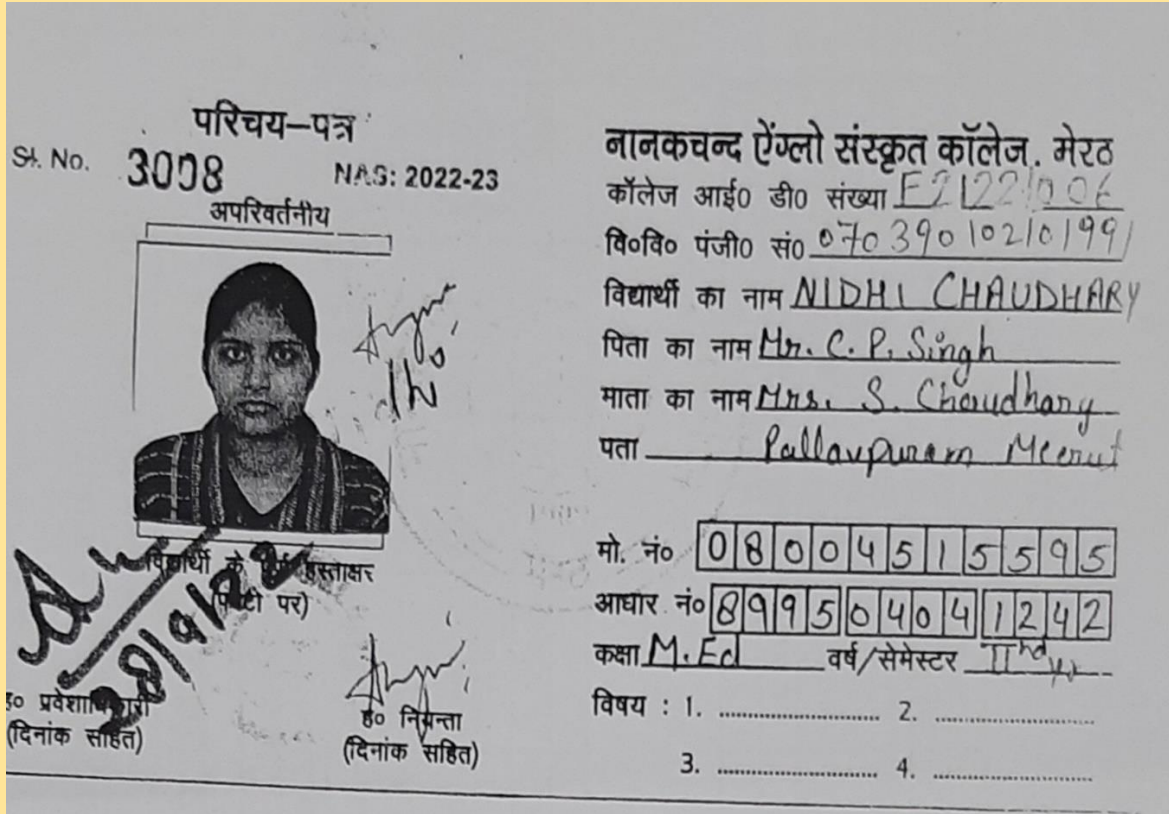 परिचय–पत्र
Sl. No. 3008 NAS: 2022-23
अपरिवर्तनीय
विद्यार्थी के हस्ताक्षर
पर)
28/9/22
ह० प्रवेशाधिकारी
(दिनांक सहित)
ह० नियन्ता
(दिनांक सहित)
नानकचन्द ऐंग्लो संस्कृत कॉलेज, मेरठ
कॉलेज आई० डी० संख्या
वि०वि० पंजी० सं० 070390102101991
विद्यार्थी का नाम NIDHI CHAUDHARY
पिता का नाम Mr. C. P. Singh
माता का नाम Mrs. S. Chaudhary
पता Pallavpuram Meerut
मो. नं० 08004515595
आधार नं० 899504041242
कक्षा M.Ed वर्ष/सेमेस्टर IInd yr
विषय : 1. .......................... 2. ..........................
3. .......................... 4. ..........................